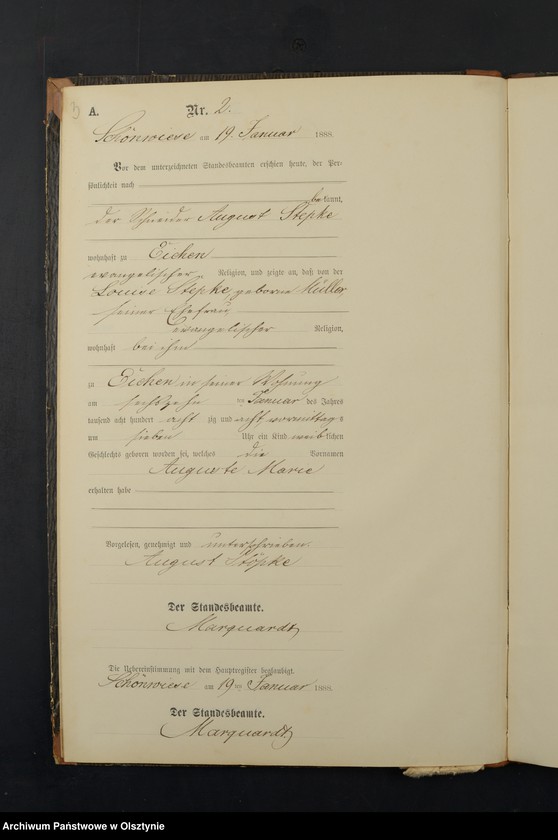 3
A.
Nr. 2.
Schönwiese am 19. Januar 1888.
Vor dem unterzeichneten Standesbeamten erschien heute, der Per-
sönlichkeit nach
bekannt,
der Schneider August Stepke
wohnhaft zu Eichen
evangelischer Religion, und zeigte an, daß von der
Louise Stepke, geborne Müller,
seiner Ehefrau,
evangelischer Religion,
wohnhaft bei ihm
zu Eichen in seiner Wohnung
am sechszehn ten Januar des Jahres
tausend acht hundert acht zig und acht vormittags
um sieben Uhr ein Kind weiblichen
Geschlechts geboren worden sei, welches die Vornamen
Auguste Marie
erhalten habe
Vorgelesen, genehmigt und unterschrieben.
August Stöpke
Der Standesbeamte.
Marquardt
Die Uebereinstimmung mit dem Hauptregister beglaubigt.
Schönwiese am 19ten Januar 1888.
Der Standesbeamte.
Marquardt
Archiwum Państwowe w Olsztynie